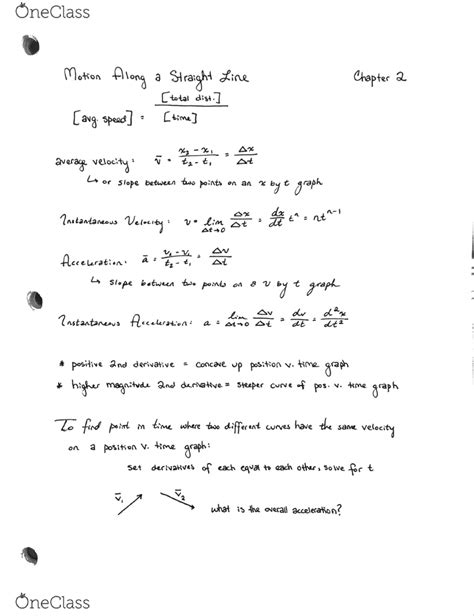 OneClass
Motion Along a Straight Line Chapter 2
[avg. speed] = [total dist.] / [time]
average velocity: v̄ = x₂ - x₁ / t₂ - t₁ = Δx / Δt
↳ or slope between two points on an x by t graph
Instantaneous Velocity: v = lim Δt→0 Δx / Δt = dx / dt tⁿ = ntⁿ⁻¹
Acceleration: ā = v₂ - v₁ / t₂ - t₁ = Δv / Δt
↳ slope between two points on a v by t graph
Instantaneous Acceleration: a = lim Δt→0 Δv / Δt = dv / dt = d²x / dt²
* positive 2nd derivative = concave up position v. time graph
* higher magnitude 2nd derivative = steeper curve of pos. v. time graph
To find point in time where two different curves have the same velocity
on a position v. time graph:
set derivatives of each equal to each other, solve for t
v̄₁ v̄₂ what is the overall acceleration?
OneClass